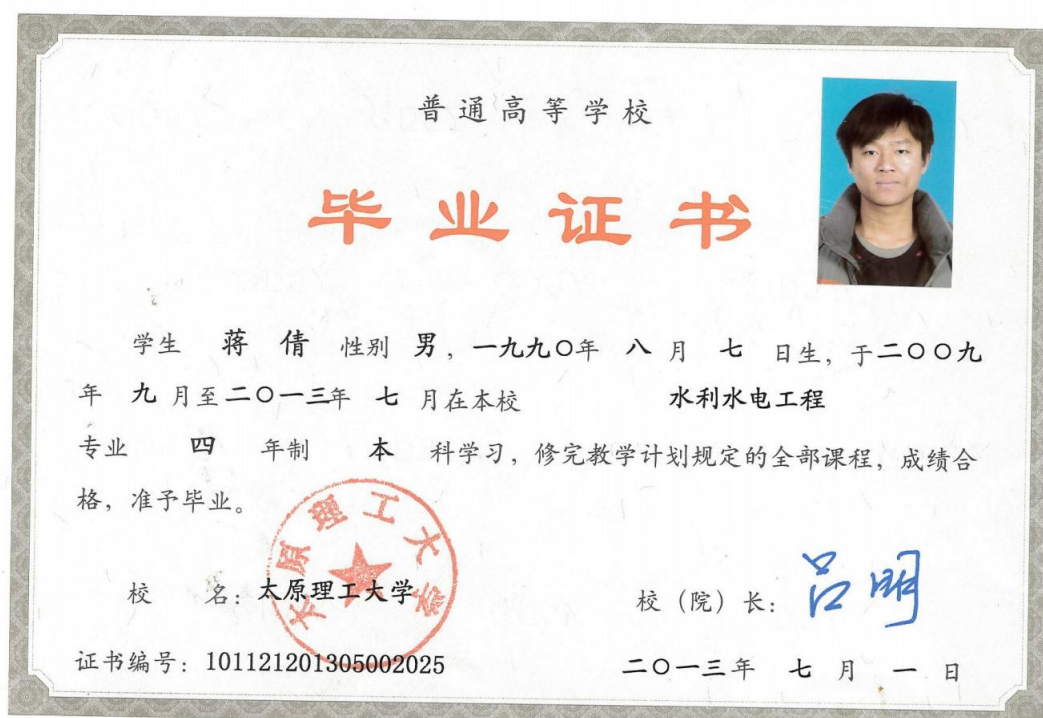 普通高等学校
毕业证书
学生 蒋倩 性别 男，一九九〇年 八 月 七 日生，于二〇〇九
年 九 月至二〇一三年 七 月在本校 水利水电工程
专业 四 年制 本 科学习，修完教学计划规定的全部课程，成绩合
格，准予毕业。
太原理工大学
校 名：太原理工大学 校（院）长：吕明
证书编号：101121201305002025 二〇一三年 七 月 一 日